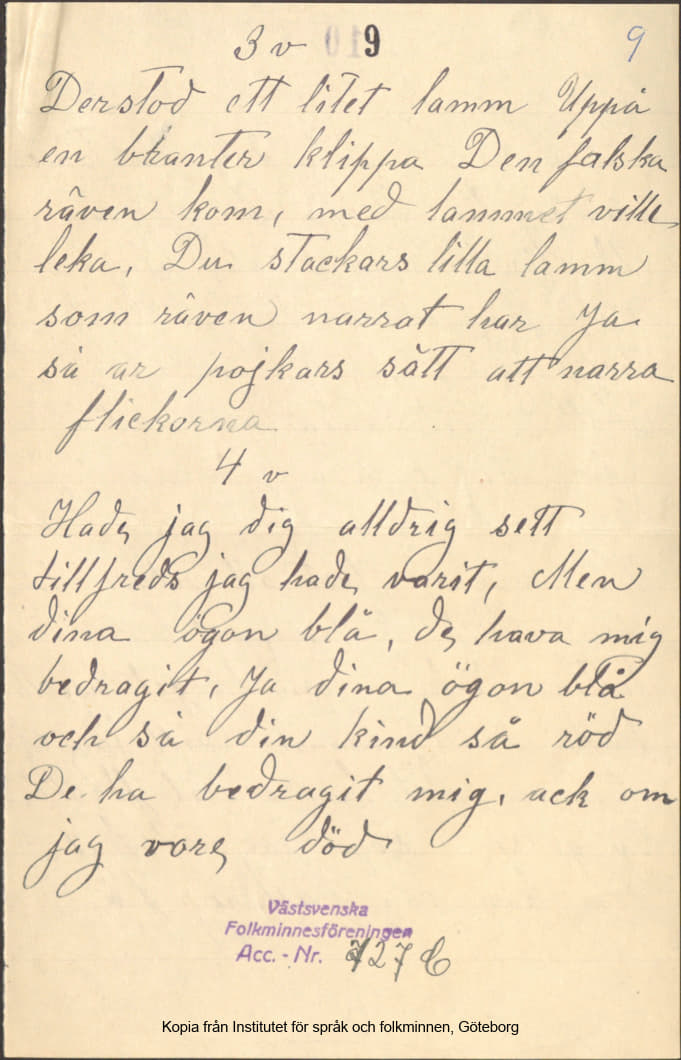 3 v 019 9
Der stod ett litet lamm Uppå
en branter klippa Den falska
räven kom, med lammet ville
leka, Du stackars lilla lamm
som räven narrat har Ja
så är pojkars sätt att narra
flickorna
4 v
Hade jag dig alldrig sett
tillfreds jag hade varit, Men
dina ögon blå, de hava mig
bedragit, Ja dina ögon blå
och så din kind så röd
De ha bedragit mig, ack om
jag vore död
Västsvenska
Folkminnesföreningen
Acc. - Nr. 727 C
Kopia från Institutet för språk och folkminnen, Göteborg